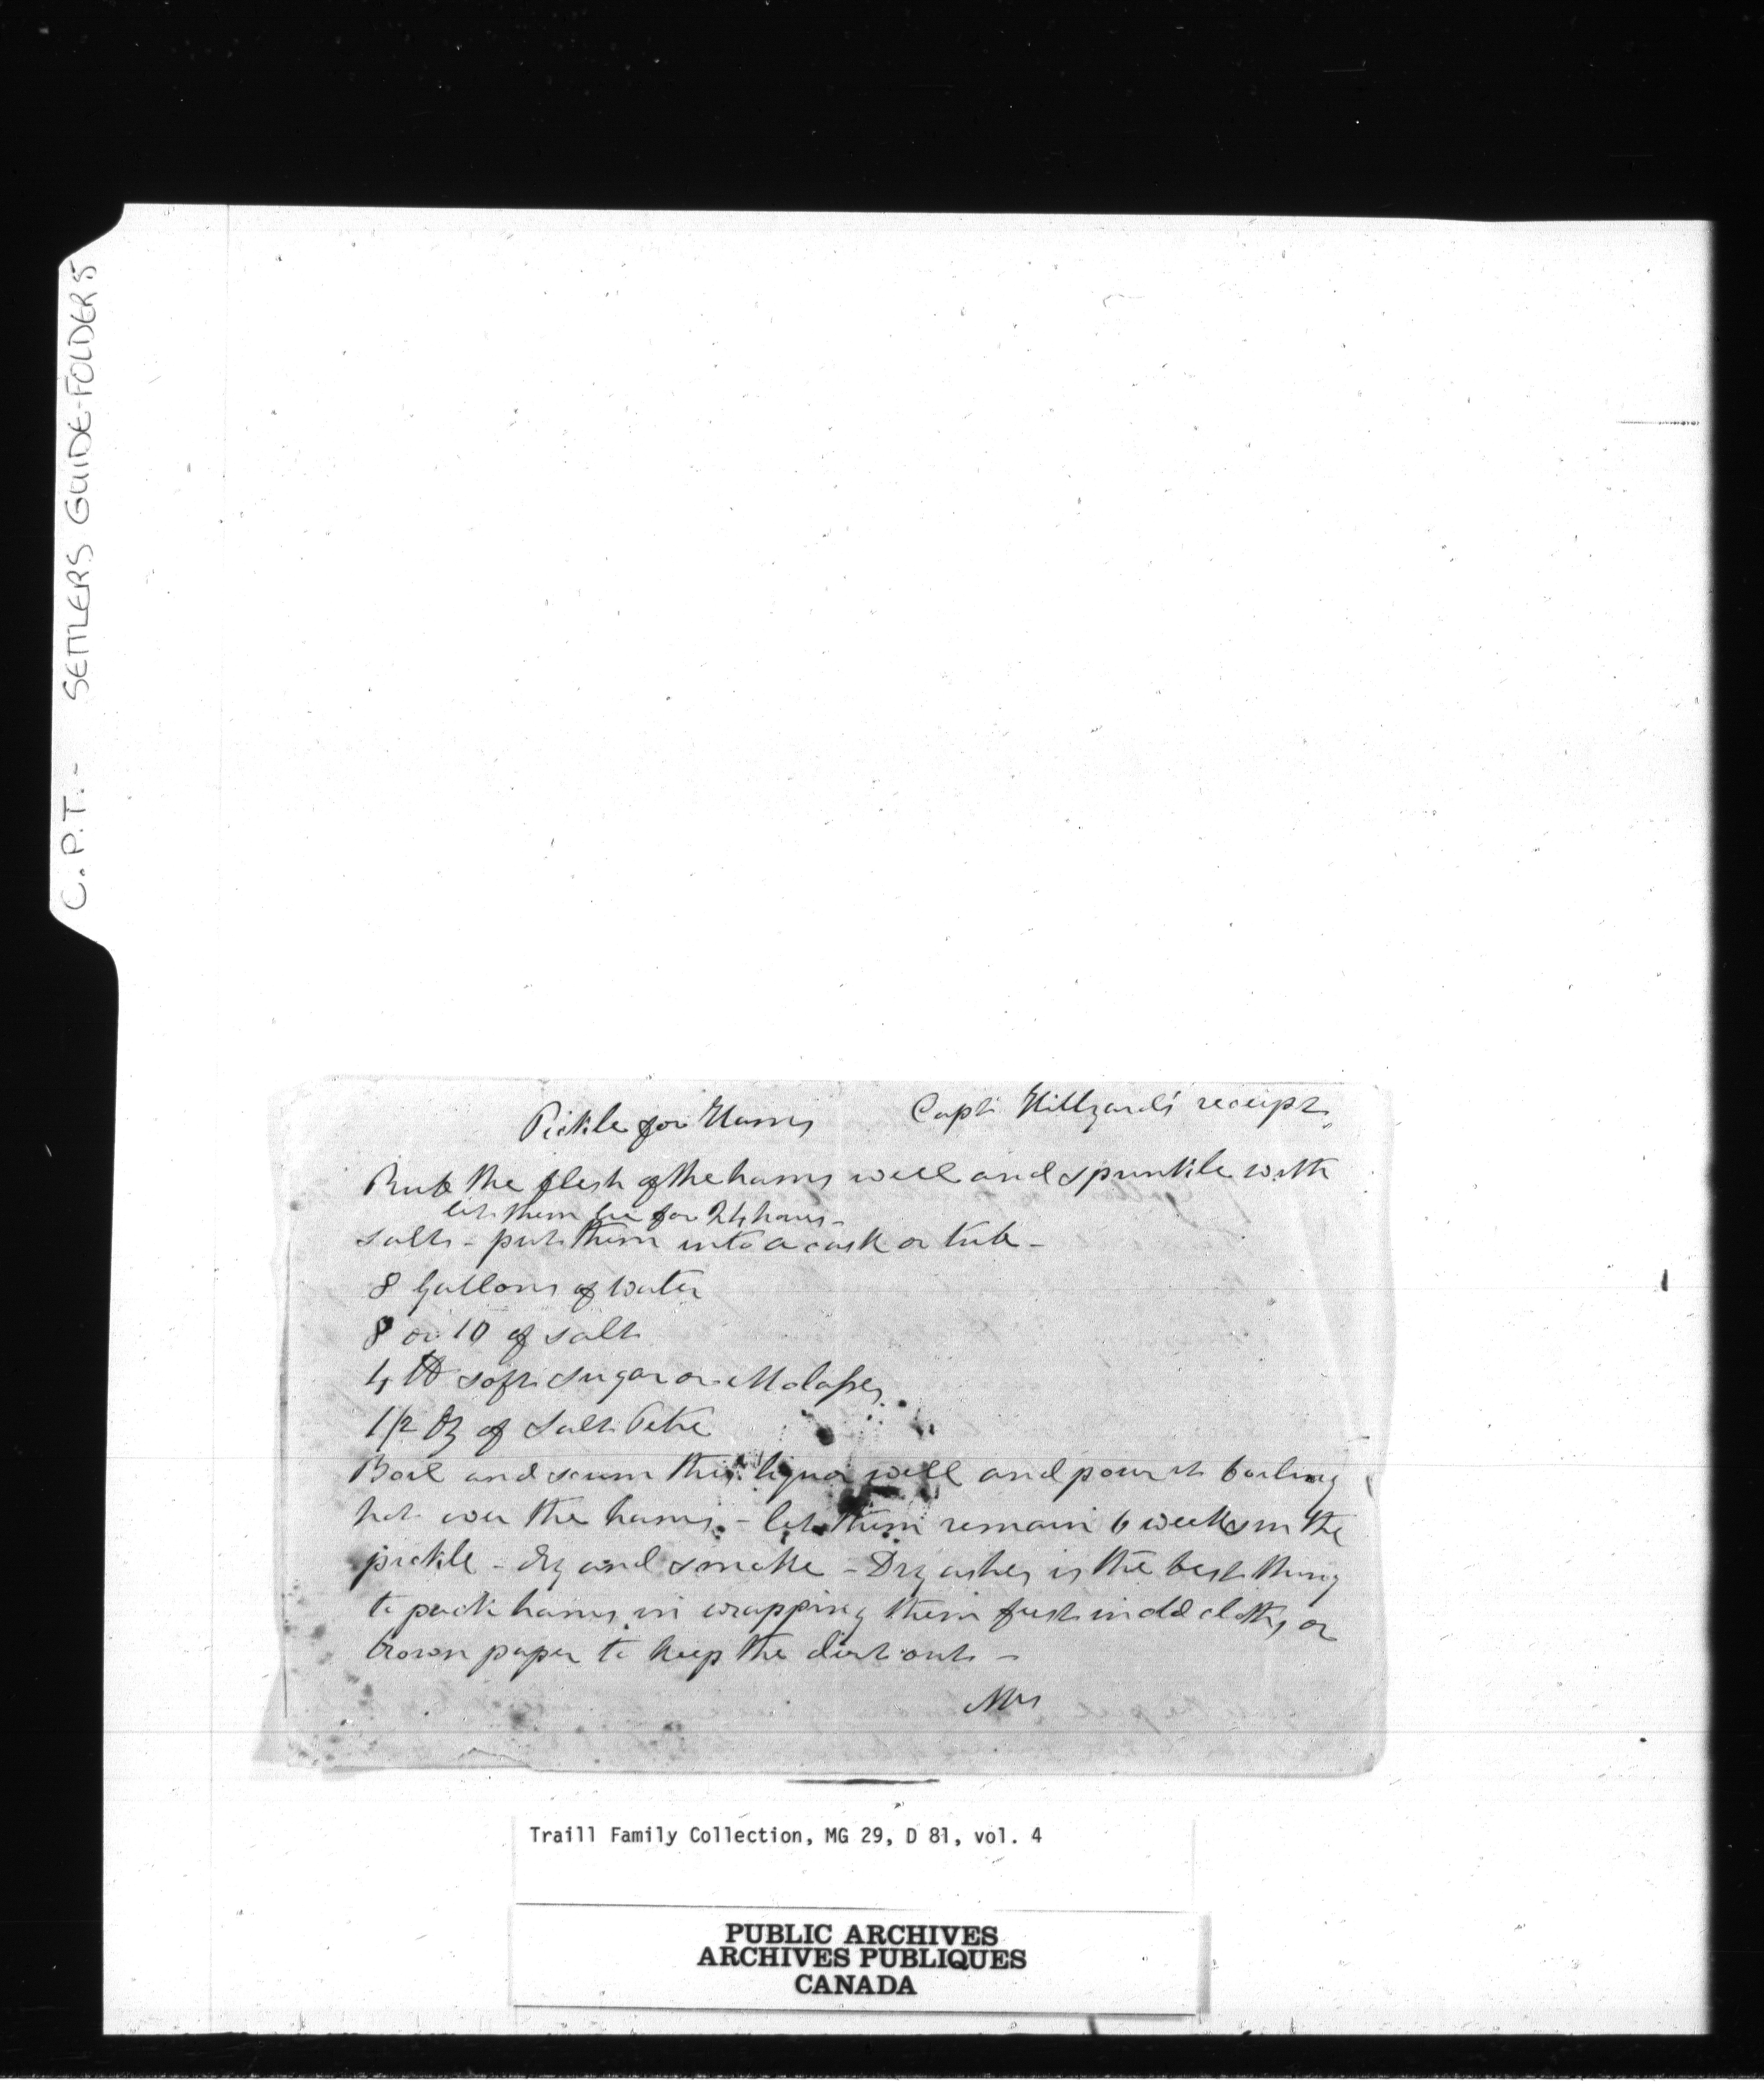 C.P.T. - SETTLERS GUIDE-FOLDERS
Pickle for Hams Capt. Hillyard's receipt
Rub the flesh of the hams well and sprinkle with
let them lie for 24 hours -
salt - put them into a cask or tub -
8 Gallons of water
8 or 10 of salt
4 lb soft sugar or Molasses
1/2 Oz of Salt Petre
Boil and scum this liquor well and pour it boiling
hot over the hams - let them remain 6 weeks in the
pickle - dry and smoke - Dry ashes is the best thing
to pack hams in wrapping them first in old cloths or
brown paper to keep the dirt out -
Mrs
Traill Family Collection, MG 29, D 81, vol. 4
PUBLIC ARCHIVES
ARCHIVES PUBLIQUES
CANADA